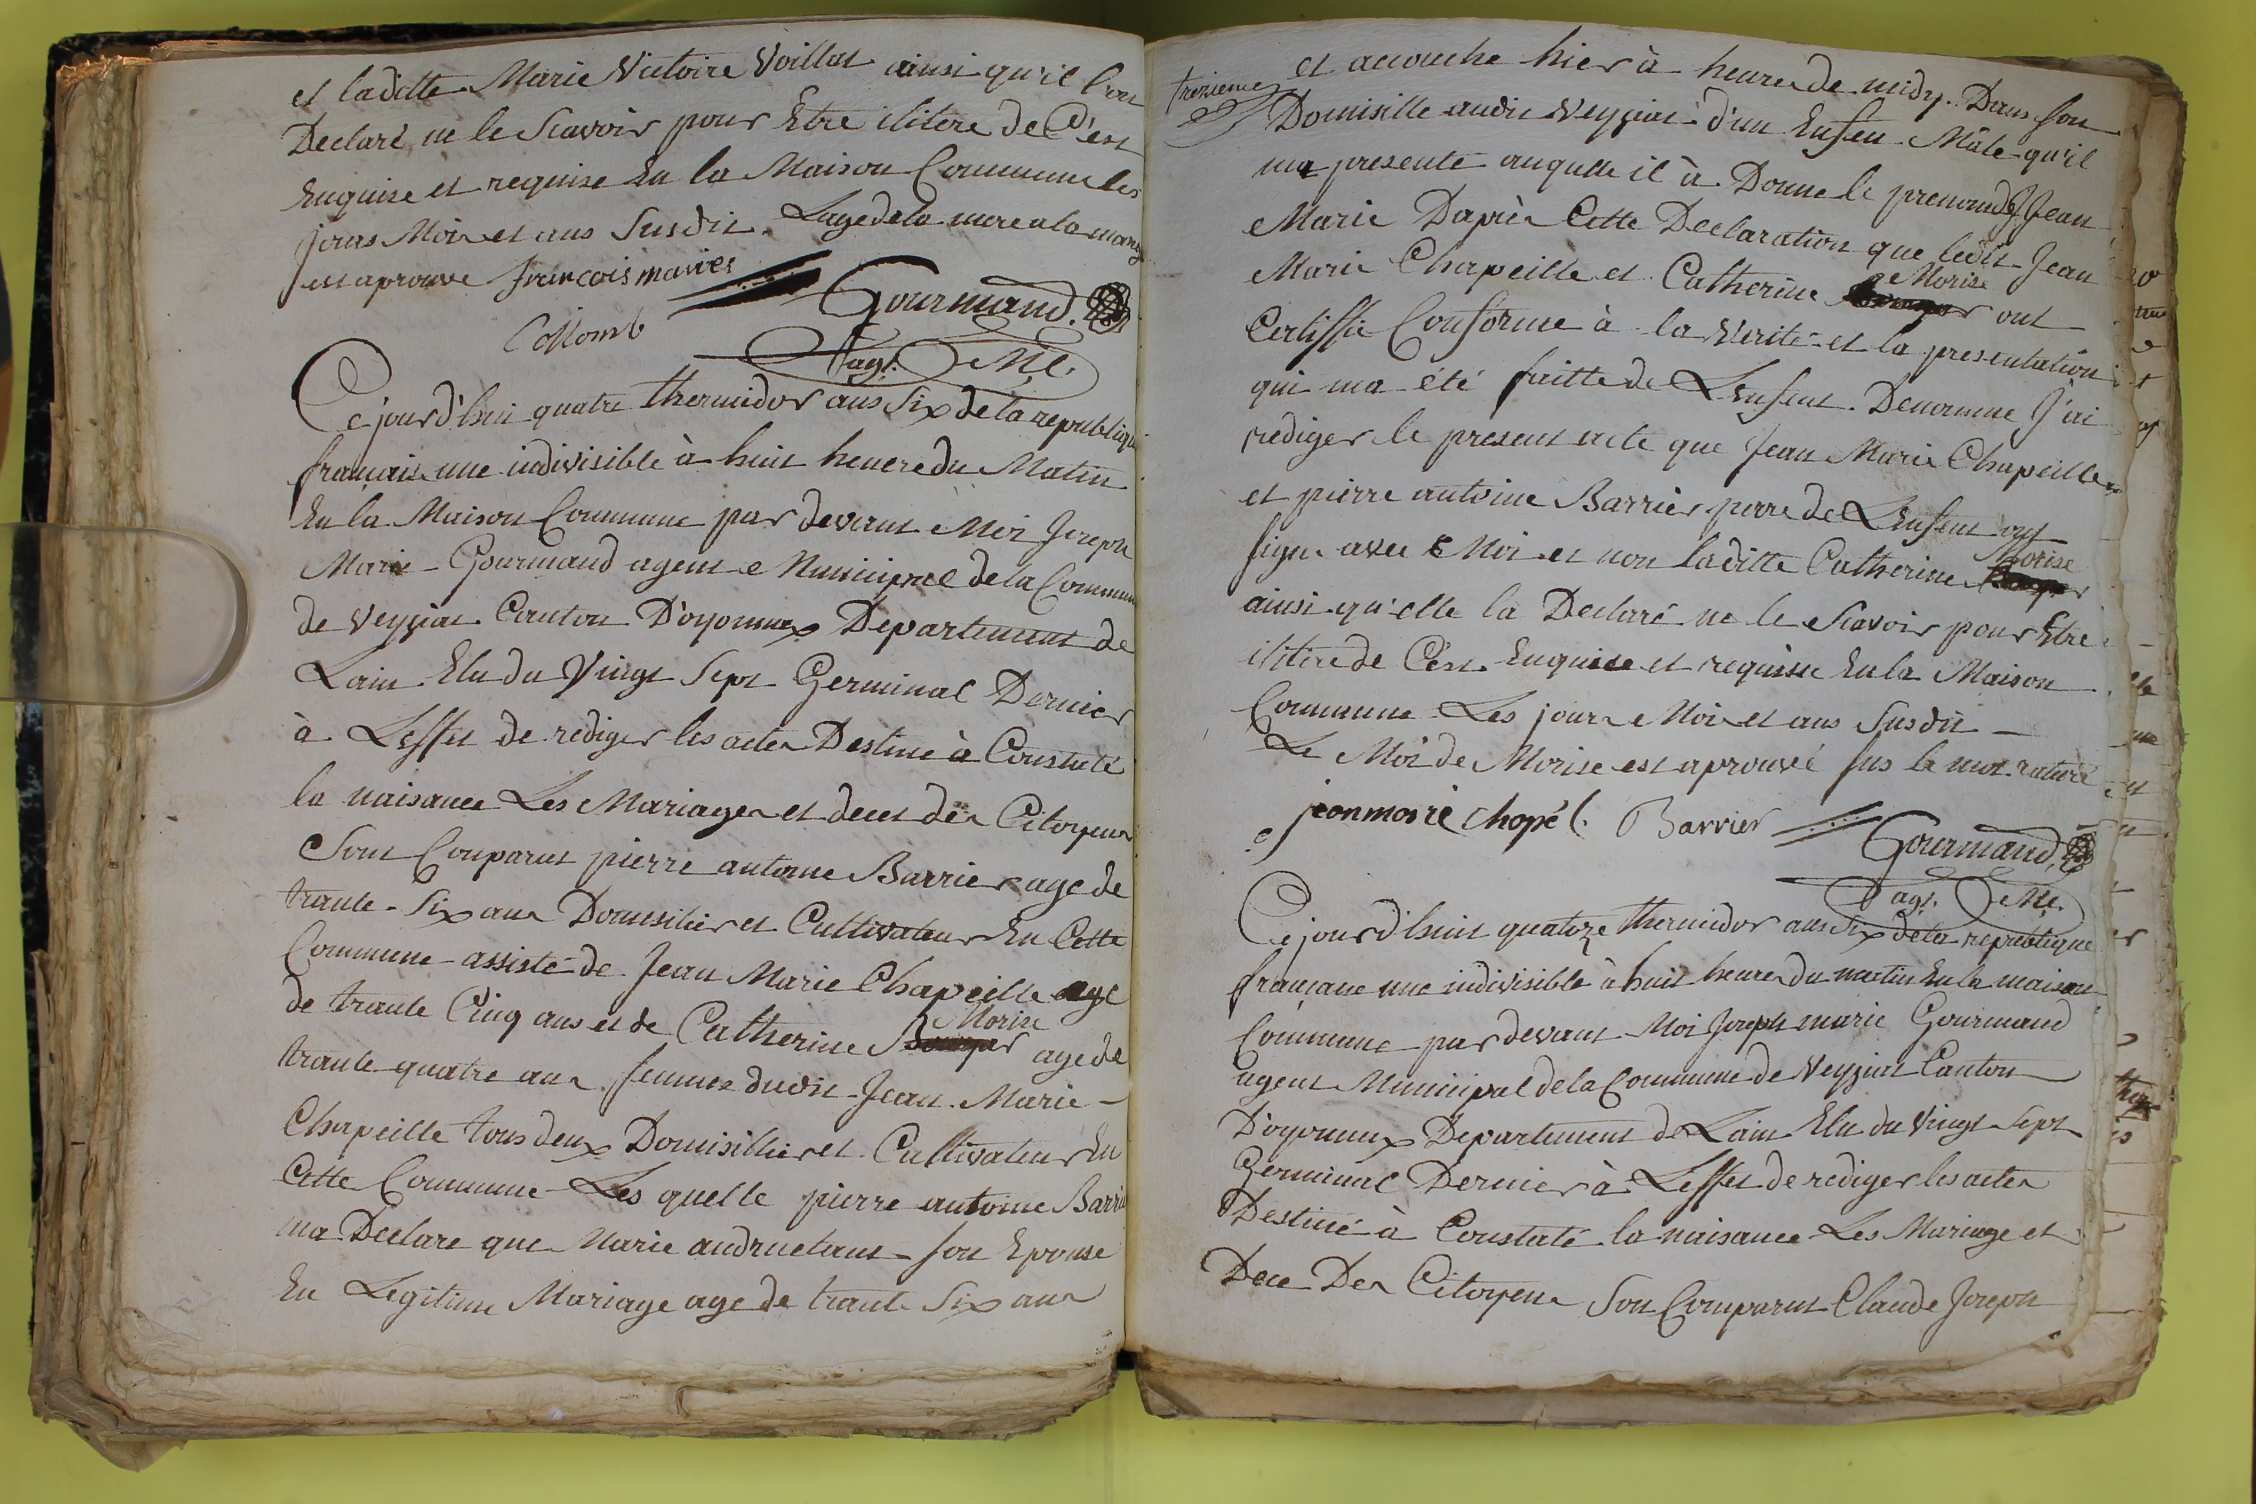 et laditte Marie Victoire Voillat ainsi qu'il l'ont
Declaré ne le Scavoir pour Etre ilitere de C'est
Enquise et requise En la Maison Commune les
jours Mois et ans Susdit. Lage de la mere a la marg
est aprouve francois marie
Gourmand.
Collomb
agt. Ml.
Ce jourd'huit quatre thermidor ans Six de la republique
française une indivisible à huit heuere du Matin
En la Maison Commune par devant Moi Joseph
Marie Gourmand agent Municipal de la Commune
de Veyziat Canton D'oyonnax Departement de
Lain Elu du Vingt Sept Germinal Dernier
à Leffet de rediger les actes Destiné à Constaté
la naisance Les Mariages et deces des Citoyens
Sont Comparut pierre antoine Barrier age de
trante-Six ans Domisilier et Cultivateur En Cette
Commune assisté de Jean Marie Chapeille age
de trante Cinq ans et de Catherine Morise
age de
trante quatre ans femme dudit Jean Marie
Chapeille tous deux Domisillier et Cultivateur En
Cette Commune Les quelle pierre antoine Barrie
ma Declare que Marie andruetant son Epouse
En Legitime Mariage age de trante Six ans
trezieme
et acouche hier à heure de midy. Dans son
Domisille audit Veyziat d'un Enfen Mâle qu'il
ma presenté auquelle il à Donne le prenom de Jean
Marie Daprès Cette Declaration que ledit Jean
Marie Chapeille et Catherine Morise ont
Certiffié Conforme à la Verité et la presentation
qui ma été faitte de Lenfent Denomme J'ai
rediger le present acte que Jean Marie Chapeille
et pierre antoine Barrier perre de Lenfent ont
signe avec Moi et non laditte Catherine Morise
ainsi qu'elle la Declaré ne le Scavoir pour Etre
ilitere de C'est Enquise et requisse En la Maison
Commune Les jours Mois et ans Susdit
Le Môt de Morise est aprouvé sus le mot raturé
jeanmarie chapél. Barrier
Gourmand,
agt. Ml.
Ce jourd'huit quatorze thermidor ans Six de la republique
françaue une indivisible à huit heure du matin En la maison
Commune par devant Moi Joseph marie Gourmand
agent Municipal de la Commune de Veyziat Canton
D'oyonnax Departement de Lain Elu du Vingt Sept
Germinal Dernier à Leffet de rediger les actes
Destiné à Constaté la naisance Les Mariage et
Dece Des Citoyens Son Comparut Claude Joseph